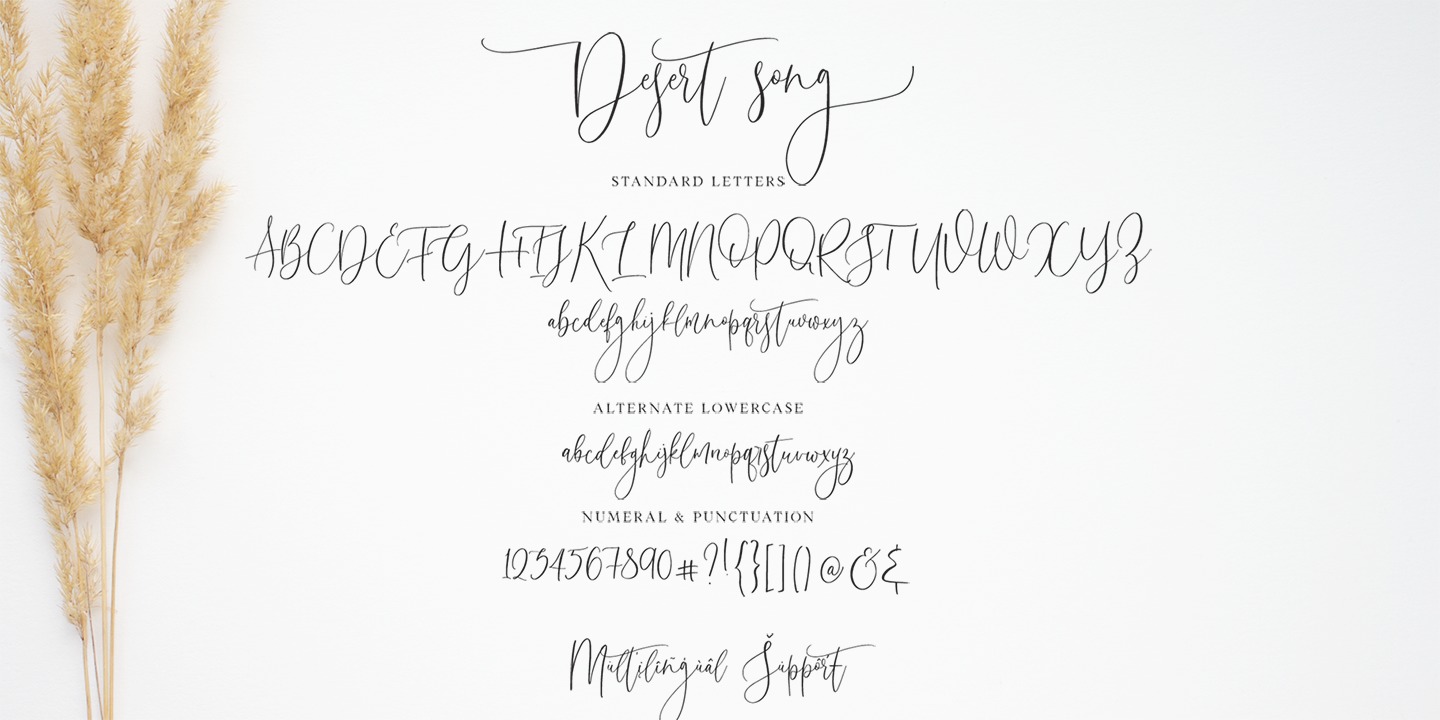 Desert song
STANDARD LETTERS
ABCDEFGHIJKLMNOPQRSTUVWXYZ
abcdefghijklmnopqrstuvwxyz
ALTERNATE LOWERCASE
abcdefghijklmnopqrstuvwxyz
NUMERAL & PUNCTUATION
1234567890#?!{}[]()@&&
Mùltįlîñġùâl Šùppôřt